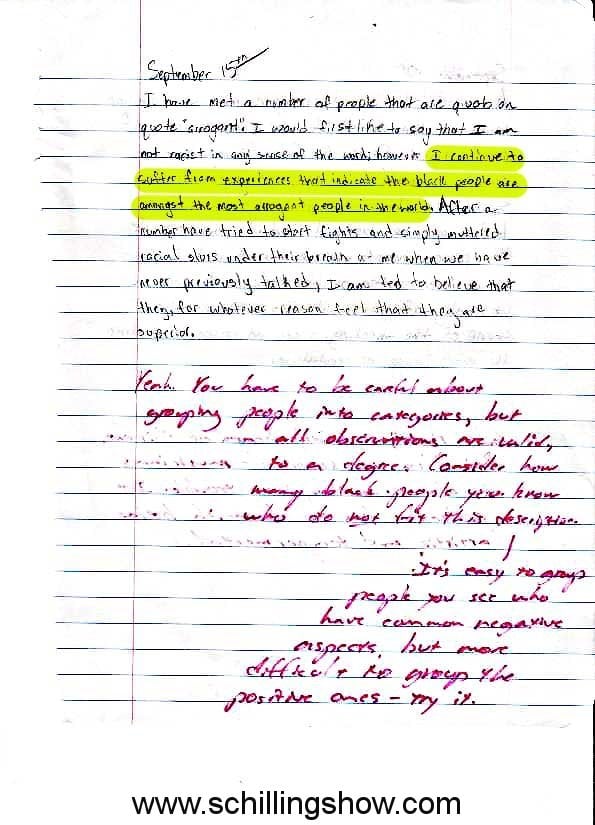 September 15th
I have met a number of people that are quote on
quote "arrogant". I would first like to say that I am
not racist in any sense of the word; however I continue to
suffer from experiences that indicate the black people are
amongst the most arrogent people in the world. After a
number have tried to start fights and simply muttered
racial slurs under their breath at me when we have
never previously talked, I am led to believe that
they, for whatever reason feel that they are
superior.
Yeah. You have to be careful about
grouping people into categories, but
all observations are valid,
to a degree. Consider how
many black people you know
who do not fit this description.
It's easy to group
people you see who
have common negative
aspects, but more
difficult to group the
positive ones - try it.
www.schillingshow.com